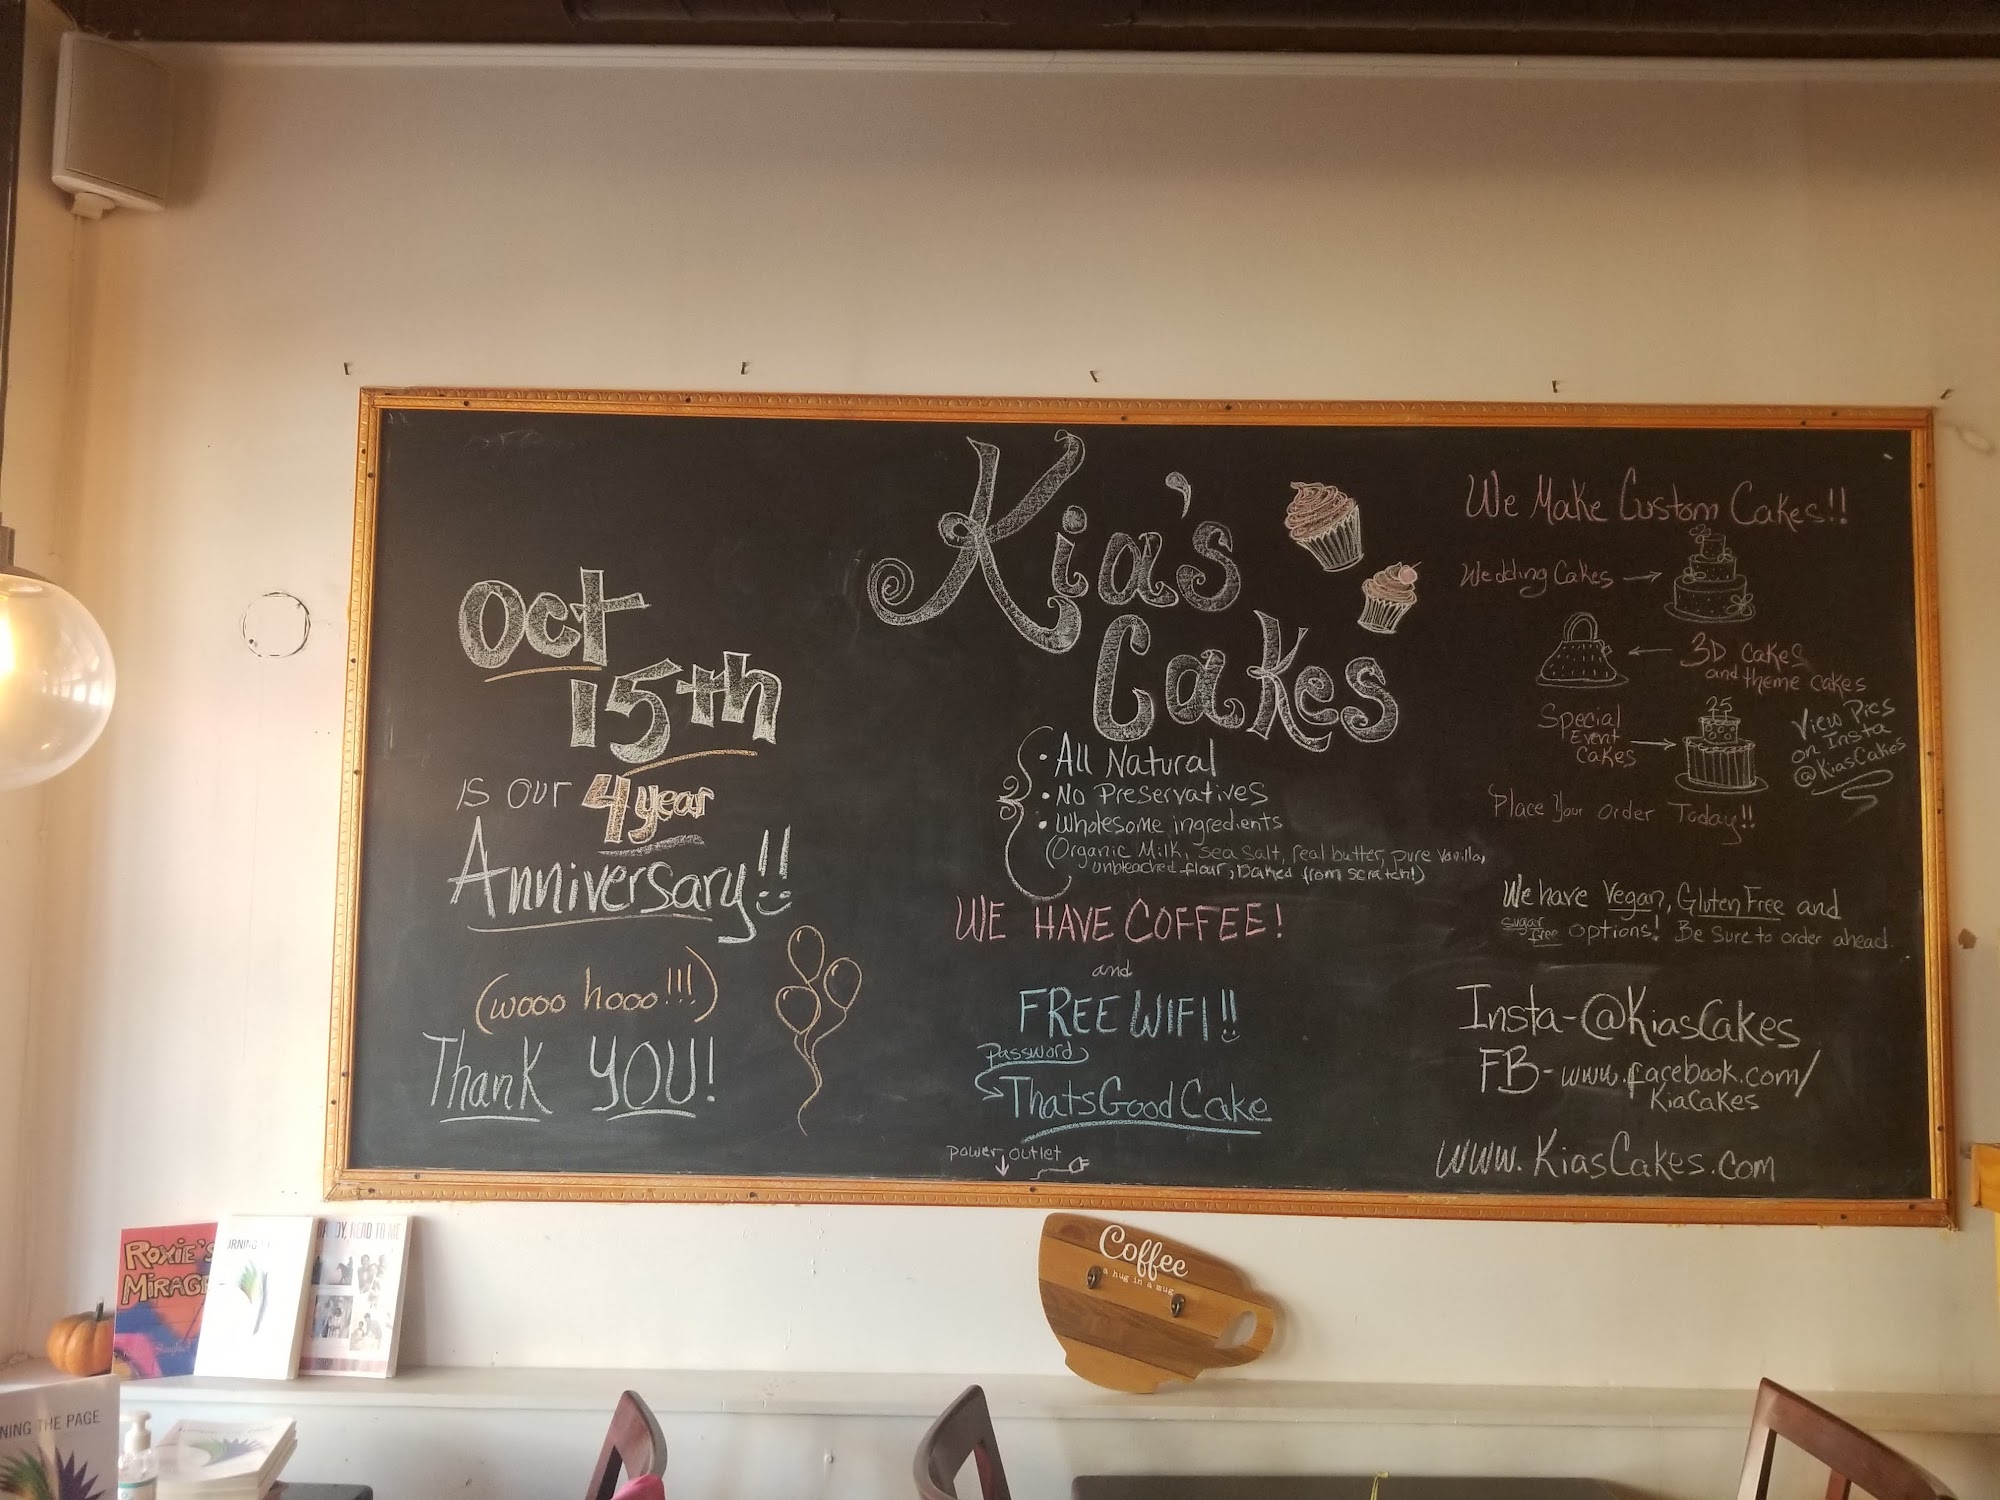 Oct
15th
is our 4 year
Anniversary!!
(wooo hooo!!!)
Thank YOU!
Kia's
Cakes
• All Natural
• No Preservatives
• Wholesome ingredients
(Organic Milk, sea salt, real butter, pure vanilla,
unbleached flour, baked from scratch!)
WE HAVE COFFEE!
and
FREE WIFI!!
Password
ThatsGoodCake
power outlet
We Make Custom Cakes!!
Wedding Cakes
3D Cakes
and theme cakes
Special
Event
Cakes
25
View Pics
on Insta
@KiasCakes
Place Your order Today!!
We have Vegan, Gluten Free and
sugar free options! Be Sure to order ahead.
Insta-@KiasCakes
FB-www.facebook.com/
KiaCakes
www.KiasCakes.com
Coffee
a hug in a mug
ROXIE'S
MIRAGE
URNING
DADDY, READ TO ME
NING THE PAGE